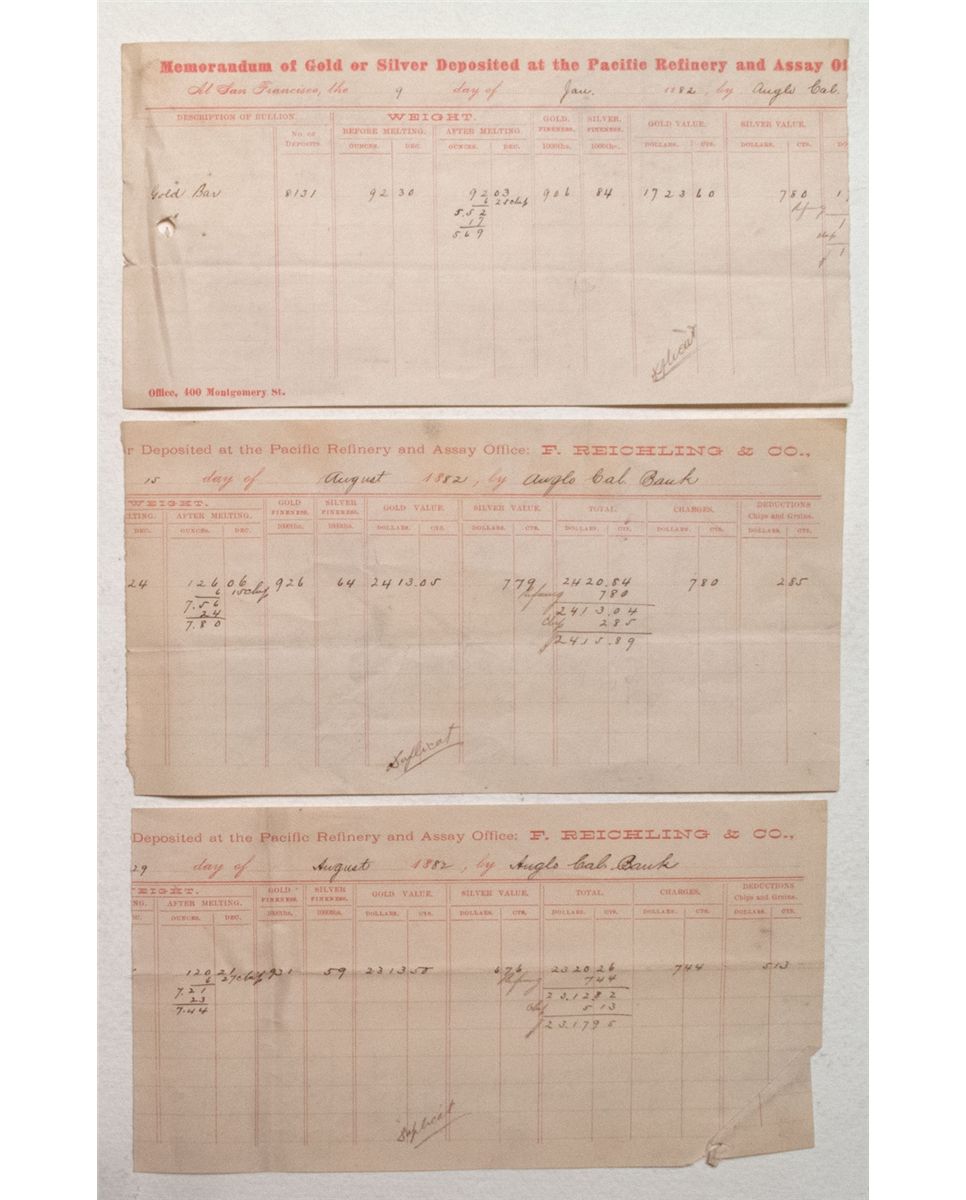 Memorandum of Gold or Silver Deposited at the Pacific Refinery and Assay Of
At San Francisco, the 9 day of Jan. 1882, by Anglo Cal.
DESCRIPTION OF BULLION. WEIGHT. GOLD. SILVER. GOLD VALUE. SILVER VALUE.
No. of Deposits. BEFORE MELTING. AFTER MELTING. FINENESS. FINENESS.
OUNCES. DEC. OUNCES. DEC. 1000ths. 1000ths. DOLLARS. CTS. DOLLARS. CTS. DO
Gold Bar 8131 92 30 92 03 906 84 1723 60 7 80 1
6
5.52
17
569
Duplicat
Office, 400 Montgomery St.
r Deposited at the Pacific Refinery and Assay Office: F. REICHLING & CO.,
15 day of August 1882, by Anglo Cal. Bank
WEIGHT. GOLD SILVER GOLD VALUE. SILVER VALUE. TOTAL. CHARGES. DEDUCTIONS
ELTING. AFTER MELTING. FINENESS. FINENESS. Chips and Grains.
DEC. OUNCES. DEC. 1000ths. 1000ths. DOLLARS. CTS. DOLLARS. CTS. DOLLARS. CTS. DOLLARS. CTS. DOLLARS. CTS.
24 126 06 926 64 2413.05 7 79 2420.84 7 80 2 85
6 15 Chips Refining 7 80
7.56 2413.04
24 Chips 2 85
7.80 2415.89
Duplicat
Deposited at the Pacific Refinery and Assay Office: F. REICHLING & CO.,
29 day of August 1882, by Anglo Cal. Bank
WEIGHT. GOLD SILVER GOLD VALUE. SILVER VALUE. TOTAL. CHARGES. DEDUCTIONS
NG. AFTER MELTING. FINENESS. FINENESS. Chips and Grains.
DEC. OUNCES. DEC. 1000ths. 1000ths. DOLLARS. CTS. DOLLARS. CTS. DOLLARS. CTS. DOLLARS. CTS. DOLLARS. CTS.
120 21 931 59 2313 50 6 76 2320 26 7 44 5 13
6 27 Chips Refining 7 44
7.21 2312 82
23 Chips 5 13
7.44 2317 95
Duplicat